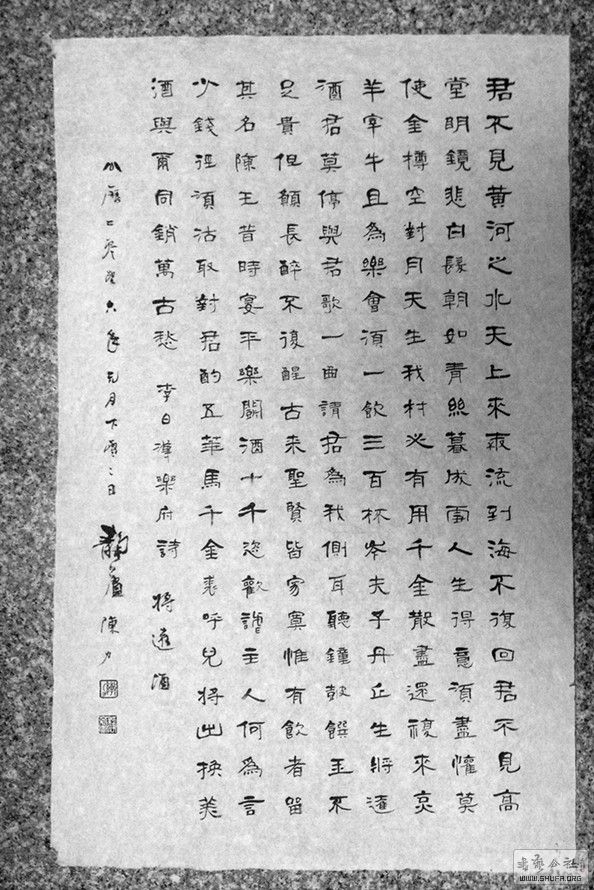 君不見黃河之水天上來奔流到海不復回君不見高
堂明鏡悲白髮朝如青絲暮成雪人生得意須盡懽莫
使金樽空對月天生我材必有用千金散盡還復來烹
羊宰牛且為樂會須一飲三百杯岑夫子丹丘生將進
酒君莫停與君歌一曲請君為我側耳聽鐘鼓饌玉不
足貴但願長醉不復醒古來聖賢皆寂寞惟有飲者留
其名陳王昔時宴平樂鬭酒十千恣歡謔主人何為言
少錢徑須沽取對君酌五華馬千金裘呼兒將出換美
酒與爾同銷萬古愁 李白漢樂府詩 將進酒
公曆二零零六年元月下 二日 靜廬 陳力
書藝公社
WWW.SHUFA.ORG